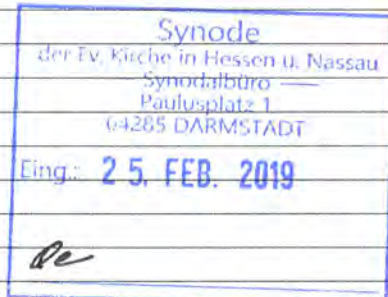 Synode
der Ev. Kirche in Hessen u. Nassau
Synodalbüro —
Paulusplatz 1
64285 DARMSTADT
Eing.: 25. FEB. 2019